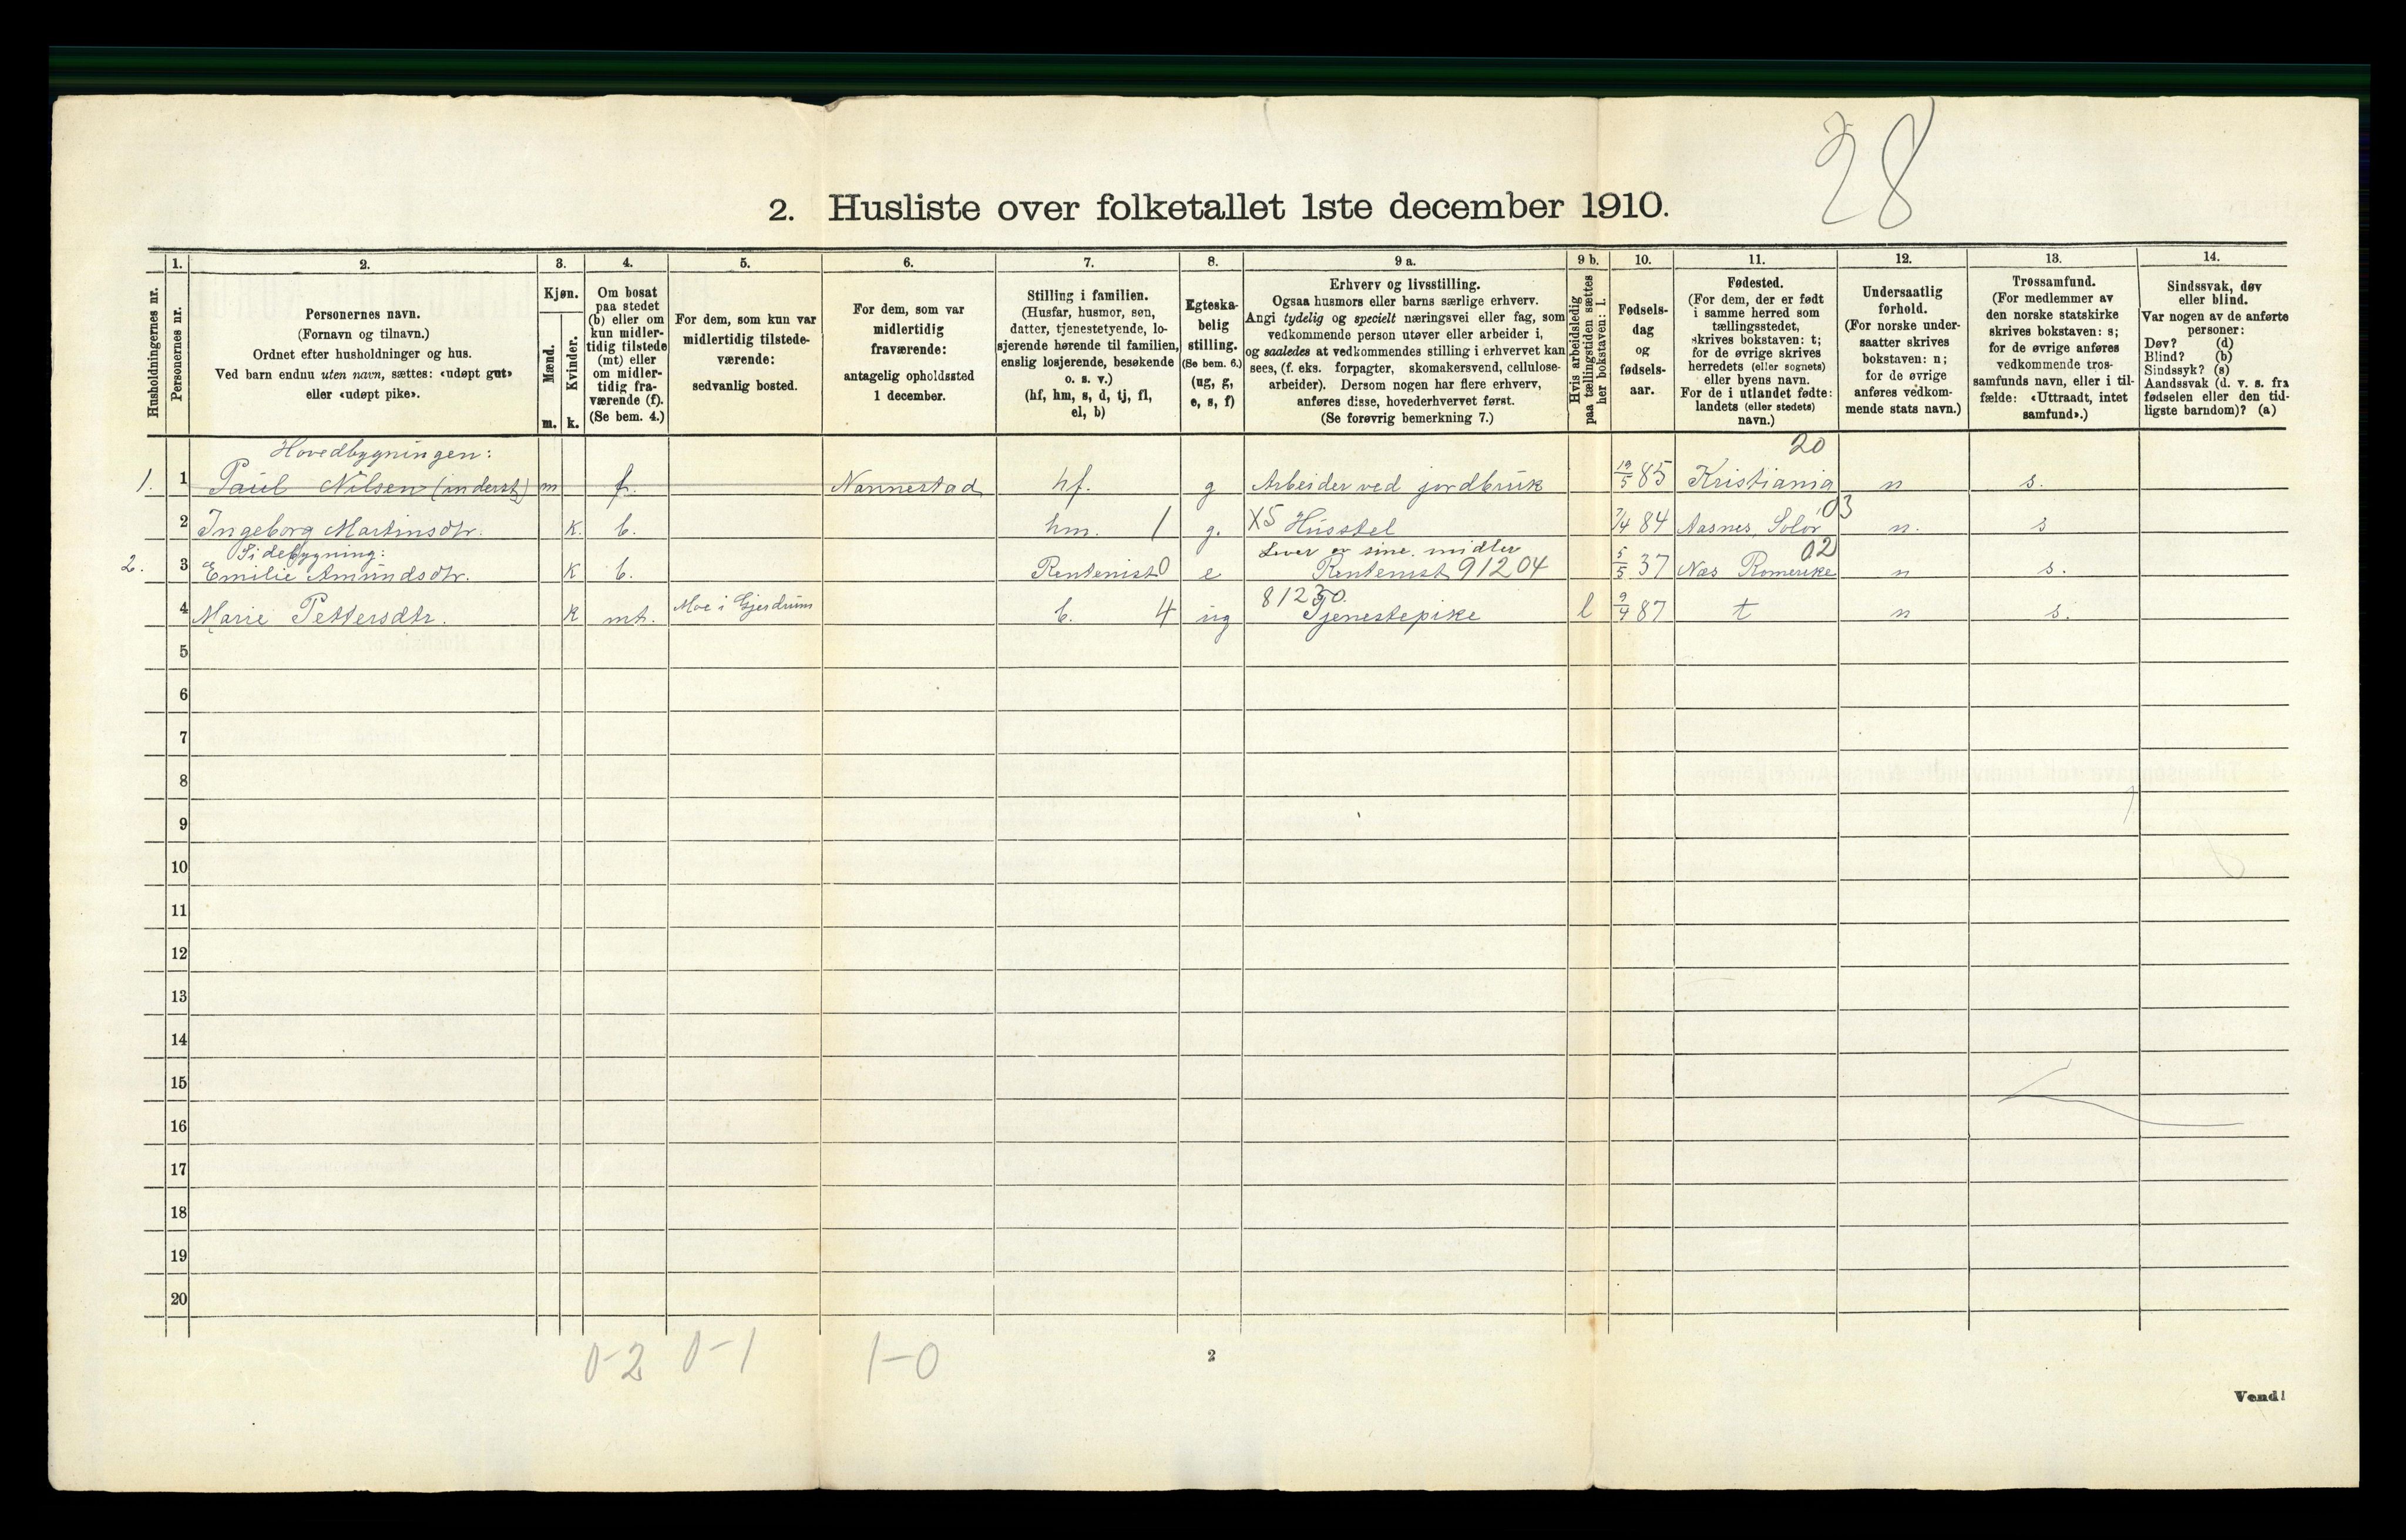 28
2. Husliste over folketallet 1ste december 1910.
Husholdningernes nr.
1. Personernes nr.
2. Personernes navn.
(Fornavn og tilnavn.)
Ordnet efter husholdninger og hus.
Ved barn endnu uten navn, sættes: «udøpt gut»
eller «udøpt pike».
3. Kjøn.
Mænd. m.
Kvinder. k.
4. Om bosat
paa stedet
(b) eller om
kun midler-
tidig tilstede
(mt) eller
om midler-
tidig fra-
værende (f).
(Se bem. 4.)
5. For dem, som kun var
midlertidig tilstede-
værende:
sedvanlig bosted.
6. For dem, som var
midlertidig
fraværende:
antagelig opholdssted
1 december.
7. Stilling i familien.
(Husfar, husmor, søn,
datter, tjenestetyende, lo-
sjerende hørende til familien,
enslig losjerende, besøkende
o. s. v.)
(hf, hm, s, d, tj, fl,
el, b)
8. Egteska-
belig
stilling.
(Se bem. 6.)
(ug, g,
e, s, f)
9 a. Erhverv og livsstilling.
Ogsaa husmors eller barns særlige erhverv.
Angi tydelig og specielt næringsvei eller fag, som
vedkommende person utøver eller arbeider i,
og saaledes at vedkommendes stilling i erhvervet kan
sees, (f. eks. forpagter, skomakersvend, cellulose-
arbeider). Dersom nogen har flere erhverv,
anføres disse, hovederhvervet først.
(Se forøvrig bemerkning 7.)
9 b. Hvis arbeidsledig
paa tællingstiden sættes
her bokstaven: l.
10. Fødsels-
dag
og
fødsels-
aar.
11. Fødested.
(For dem, der er født
i samme herred som
tællingsstedet,
skrives bokstaven: t;
for de øvrige skrives
herredets (eller sognets)
eller byens navn.
For de i utlandet fødte:
landets (eller stedets)
navn.)
12. Undersaatlig
forhold.
(For norske under-
saatter skrives
bokstaven: n;
for de øvrige
anføres vedkom-
mende stats navn.)
13. Trossamfund.
(For medlemmer av
den norske statskirke
skrives bokstaven: s;
for de øvrige anføres
vedkommende tros-
samfunds navn, eller i til-
fælde: «Uttraadt, intet
samfund».)
14. Sindssvak, døv
eller blind.
Var nogen av de anførte
personer:
Døv? (d)
Blind? (b)
Sindssyk? (s)
Aandssvak (d. v. s. fra
fødselen eller den tid-
ligste barndom)? (a)
Hovedbygningen: 20
1. 1 Paul Nilsen (inderst) m f. Nannestad hf. g Arbeider ved jordbruk 19/5 85 Kristiania n s.
2 Ingeborg Martinsdtr. K. b. hm. 1 g. X5 Husstel 7/4 84 Aasnes, Solør 03 n. s
Sidebygning: Lever av sine midler 02
2. 3 Emilie Amundsdtr. K b. Rentenist 0 e Rentenist 91204 5/5 37 Næs Romerike n s.
4 Marie Pettersdtr. K mt. Moe i Gjerdrum b. 4 ug 81230. Tjenestepike l 9/4 87 t n s.
5
6
7
8
9
10
11
12
13
14
15
16
17
18
19
20
0-2 0-1 1-0
2
Vend!